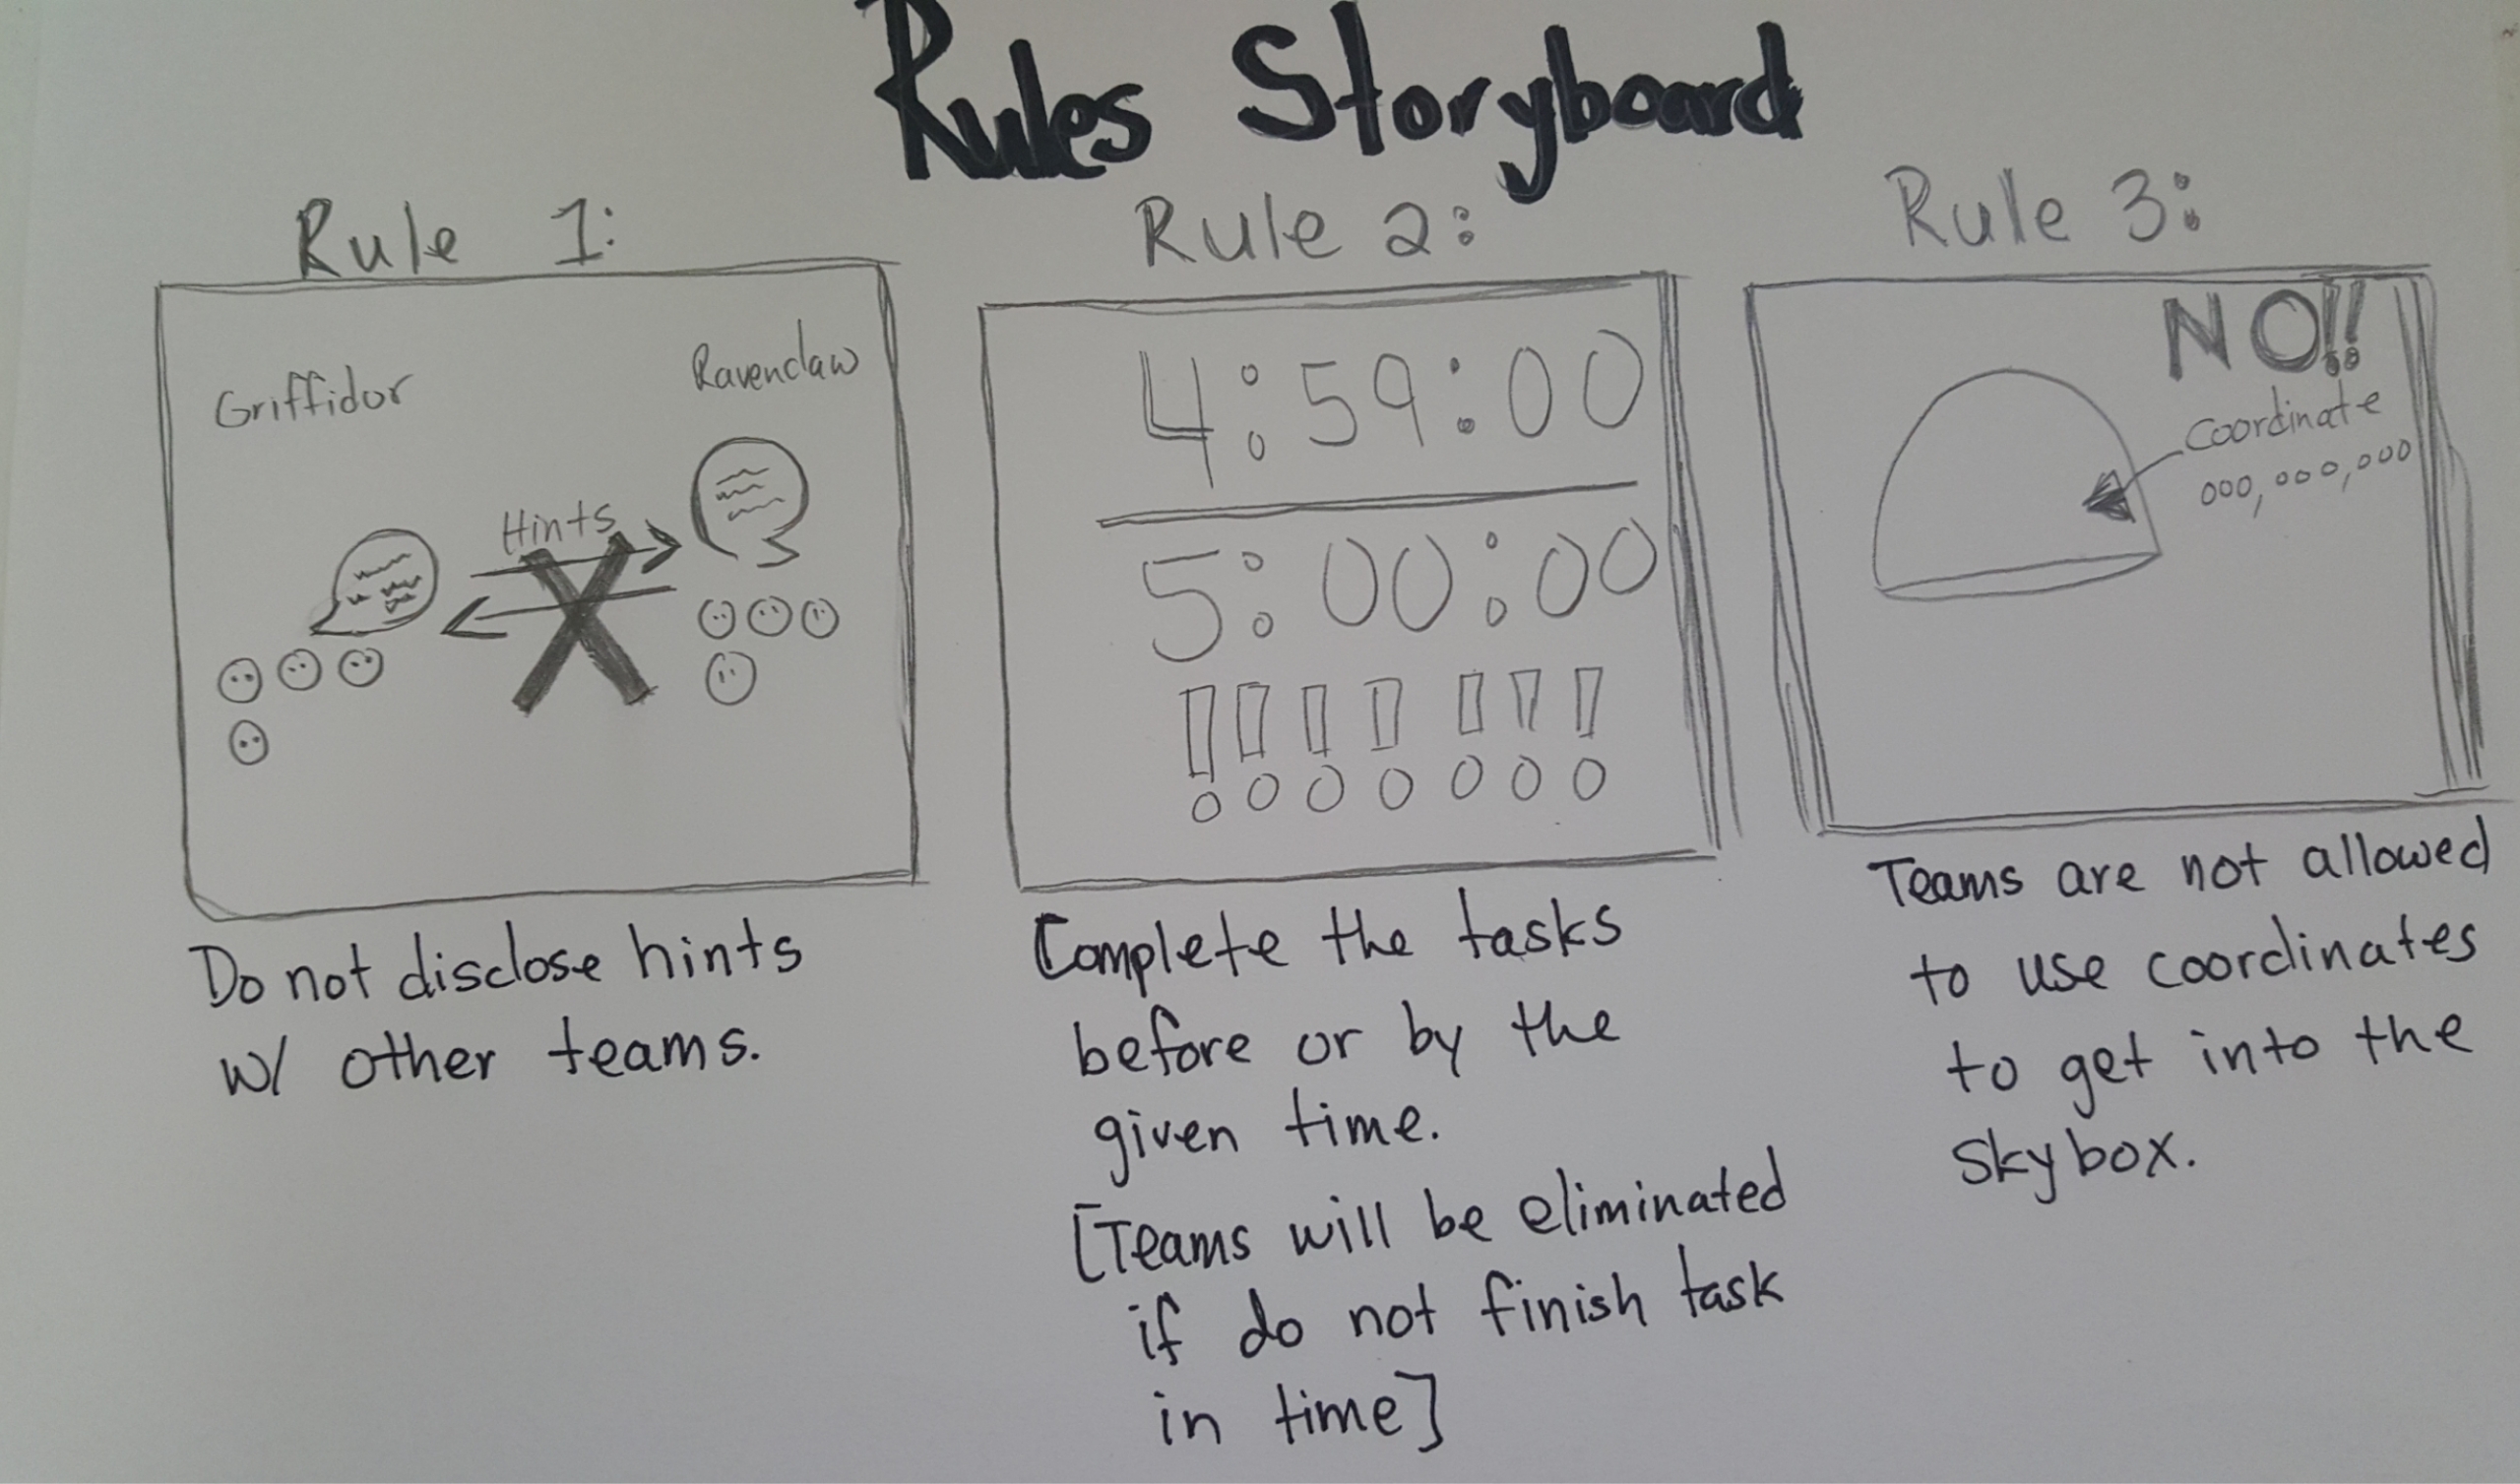 Rules Storyboard
Rule 1:
Griffidor
Ravenclaw
Hints
Do not disclose hints
w/ other teams.
Rule 2:
4:59:00
5:00:00
!!!!!!!
Complete the tasks
before or by the
given time.
[Teams will be eliminated
if do not finish task
in time]
Rule 3:
NO!!
Coordinate
000,000,000
Teams are not allowed
to use coordinates
to get into the
skybox.